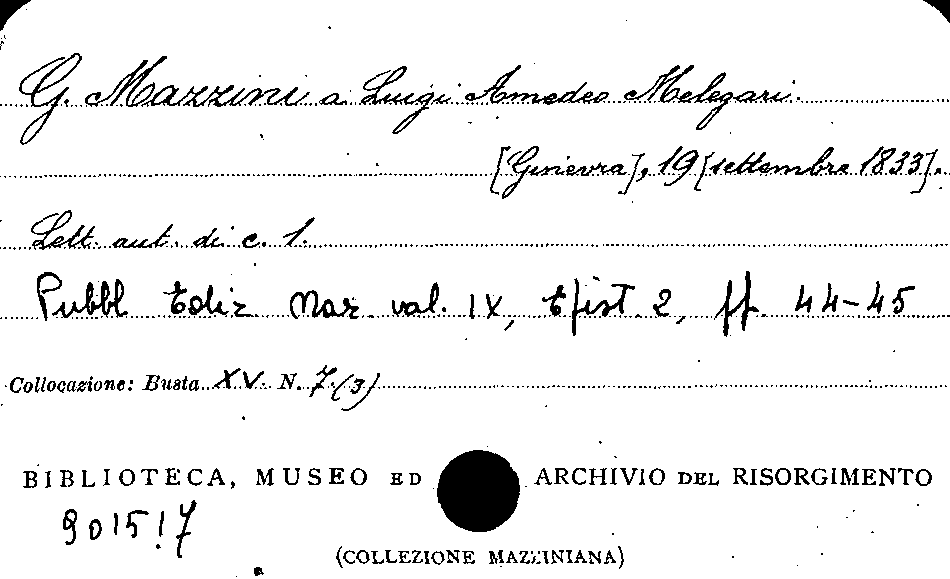 G. Mazzini a Luigi Amedeo Melegari.
[Ginevra], 19 [settembre 1833].
Lett. aut. di c. 1.
Pubbl Ediz Naz. vol. IX, Epist. 2, pp. 44-45
Collocazione: Busta XV. N. 7.(3)
BIBLIOTECA, MUSEO ED ARCHIVIO DEL RISORGIMENTO
90151.7
(COLLEZIONE MAZZINIANA)